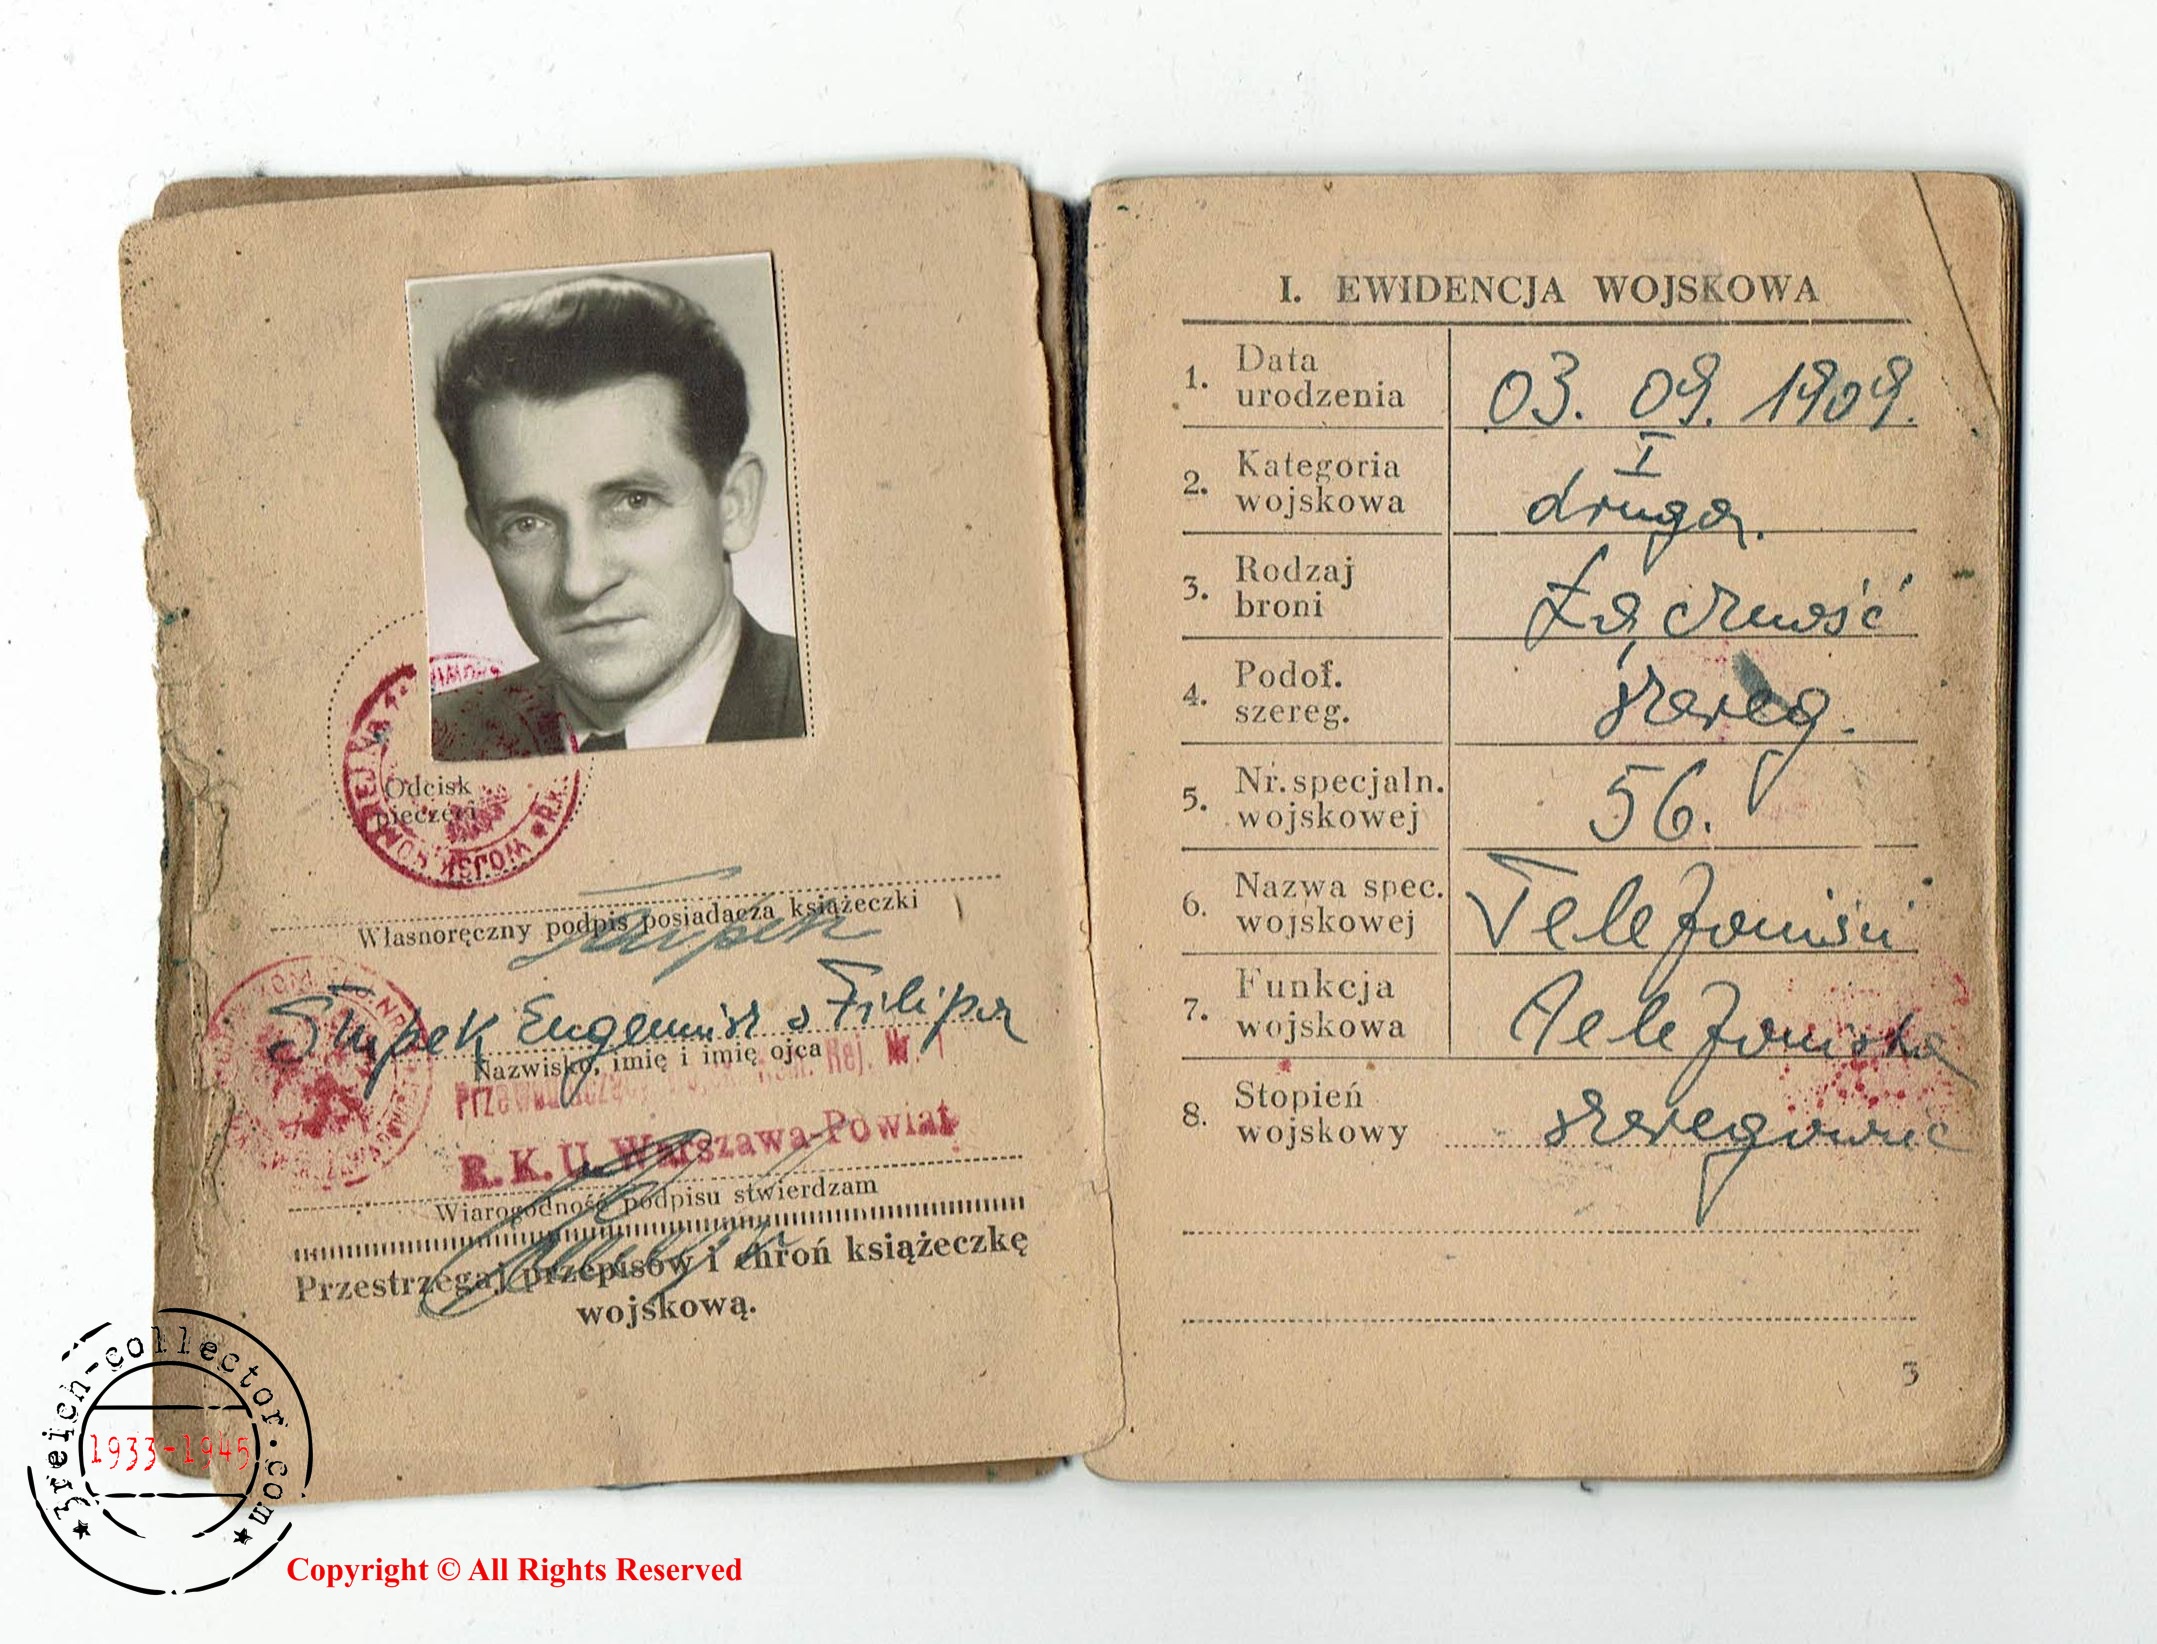 Odcisk
pieczęci
Własnoręczny podpis posiadacza książeczki
Słupek Eugeniusz s Filipa
Nazwisko, imię i imię ojca
Przewodniczący Kom. Rej. Nr. 1
R.K.U. Warszawa-Powiat
Wiarogodność podpisu stwierdzam
Przestrzegaj przepisów i chroń książeczkę
wojskową.
I. EWIDENCJA WOJSKOWA
1. Data urodzenia 03. 09. 1909.
I
2. Kategoria wojskowa druga.
3. Rodzaj broni Łączność
4. Podof. szereg. szereg.
5. Nr. specjaln. wojskowej 56.
6. Nazwa spec. wojskowej Telefoniści
7. Funkcja wojskowa Telefonista
8. Stopień wojskowy szeregowiec
3
3reich-collector.com
1933-1945
Copyright © All Rights Reserved